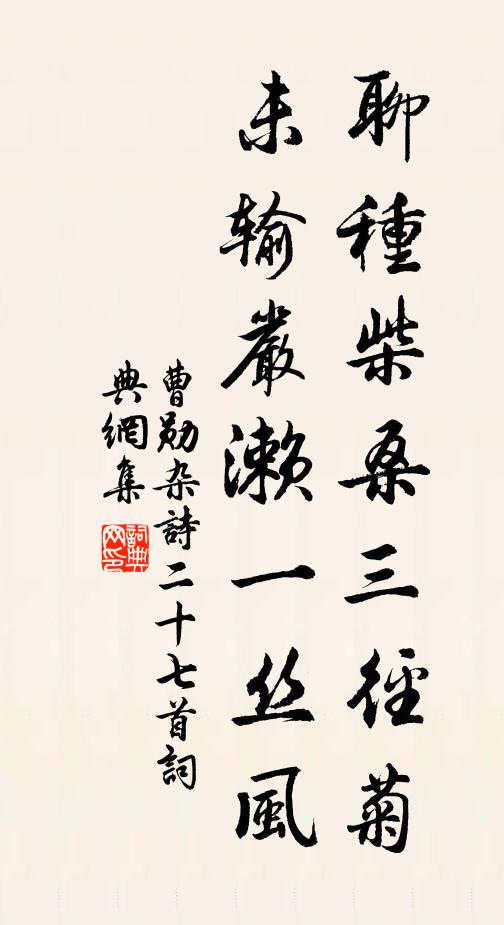 聊種柴桑三徑菊
未输嚴瀨一丝風
曹勛杂詩二十七首詞
典網集
詞典
网印